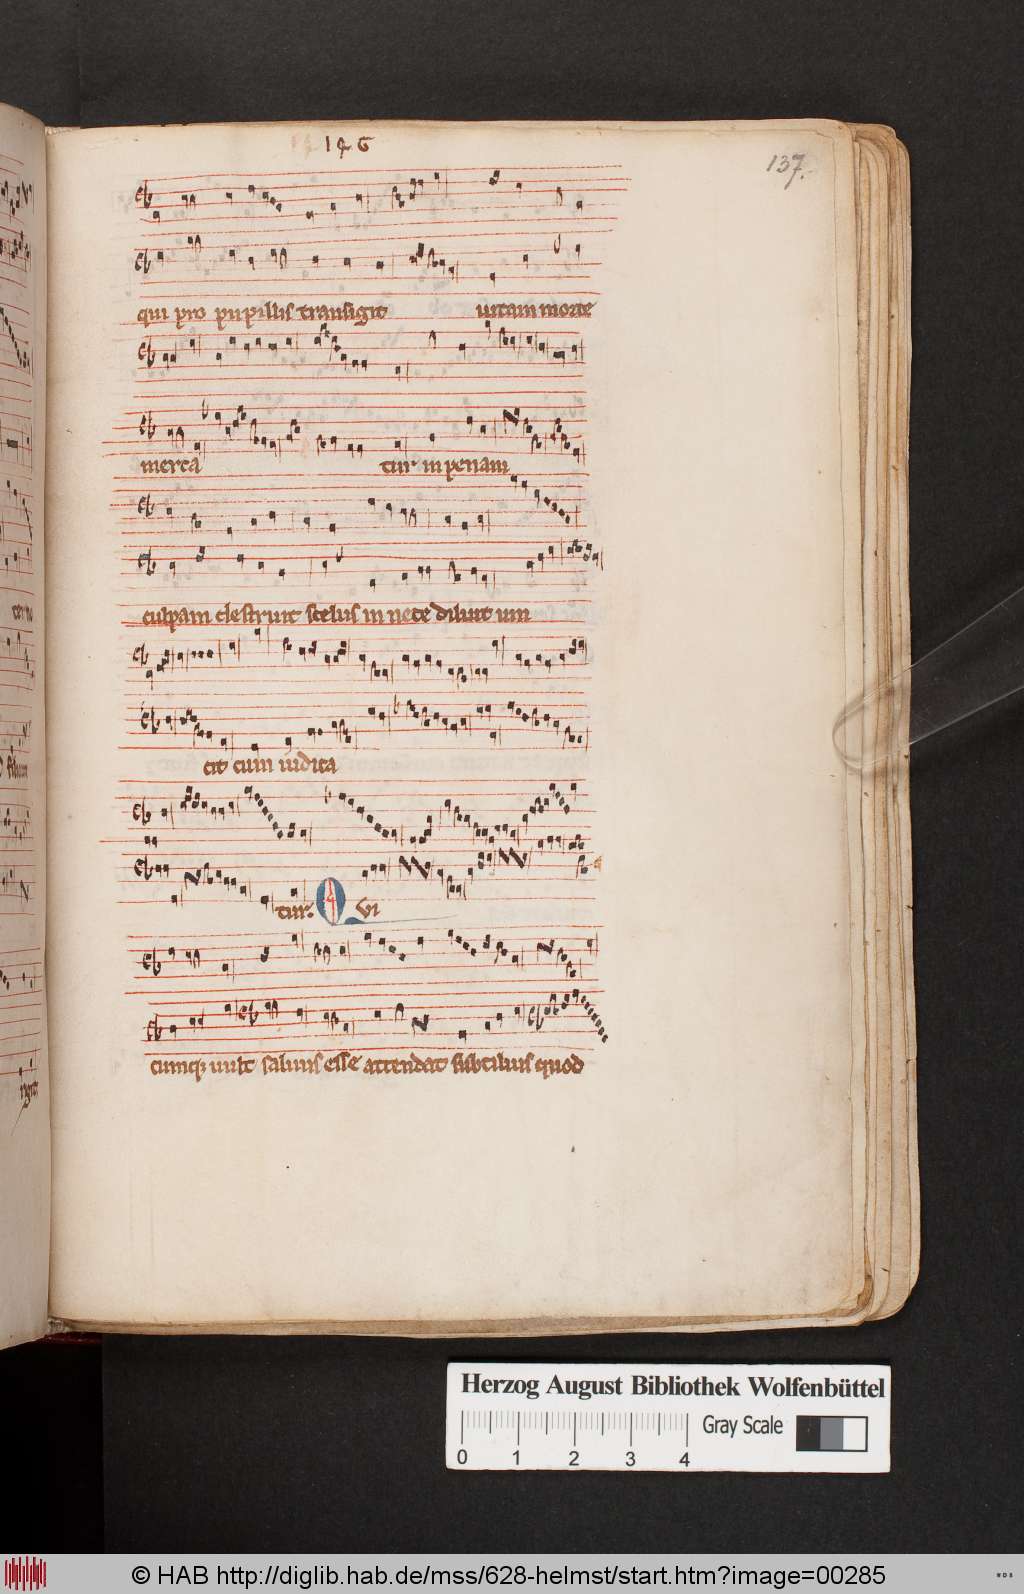 146
137.
qui pro pupillis transigit uitam morte
merca tur in penam
culpam destruit scelus in nece diluit uin
cit cum iudica
tur. Q VI
cumq; uult saluus esse attendat subtilius quod
Herzog August Bibliothek Wolfenbüttel
Gray Scale
0 1 2 3 4
© HAB http://diglib.hab.de/mss/628-helmst/start.htm?image=00285